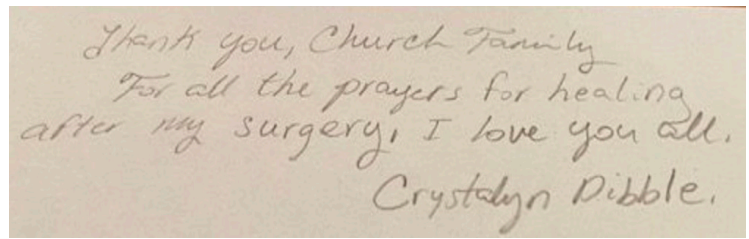 Thank you, Church Family
For all the prayers for healing
after my surgery, I love you all.
Crystalyn Dibble.